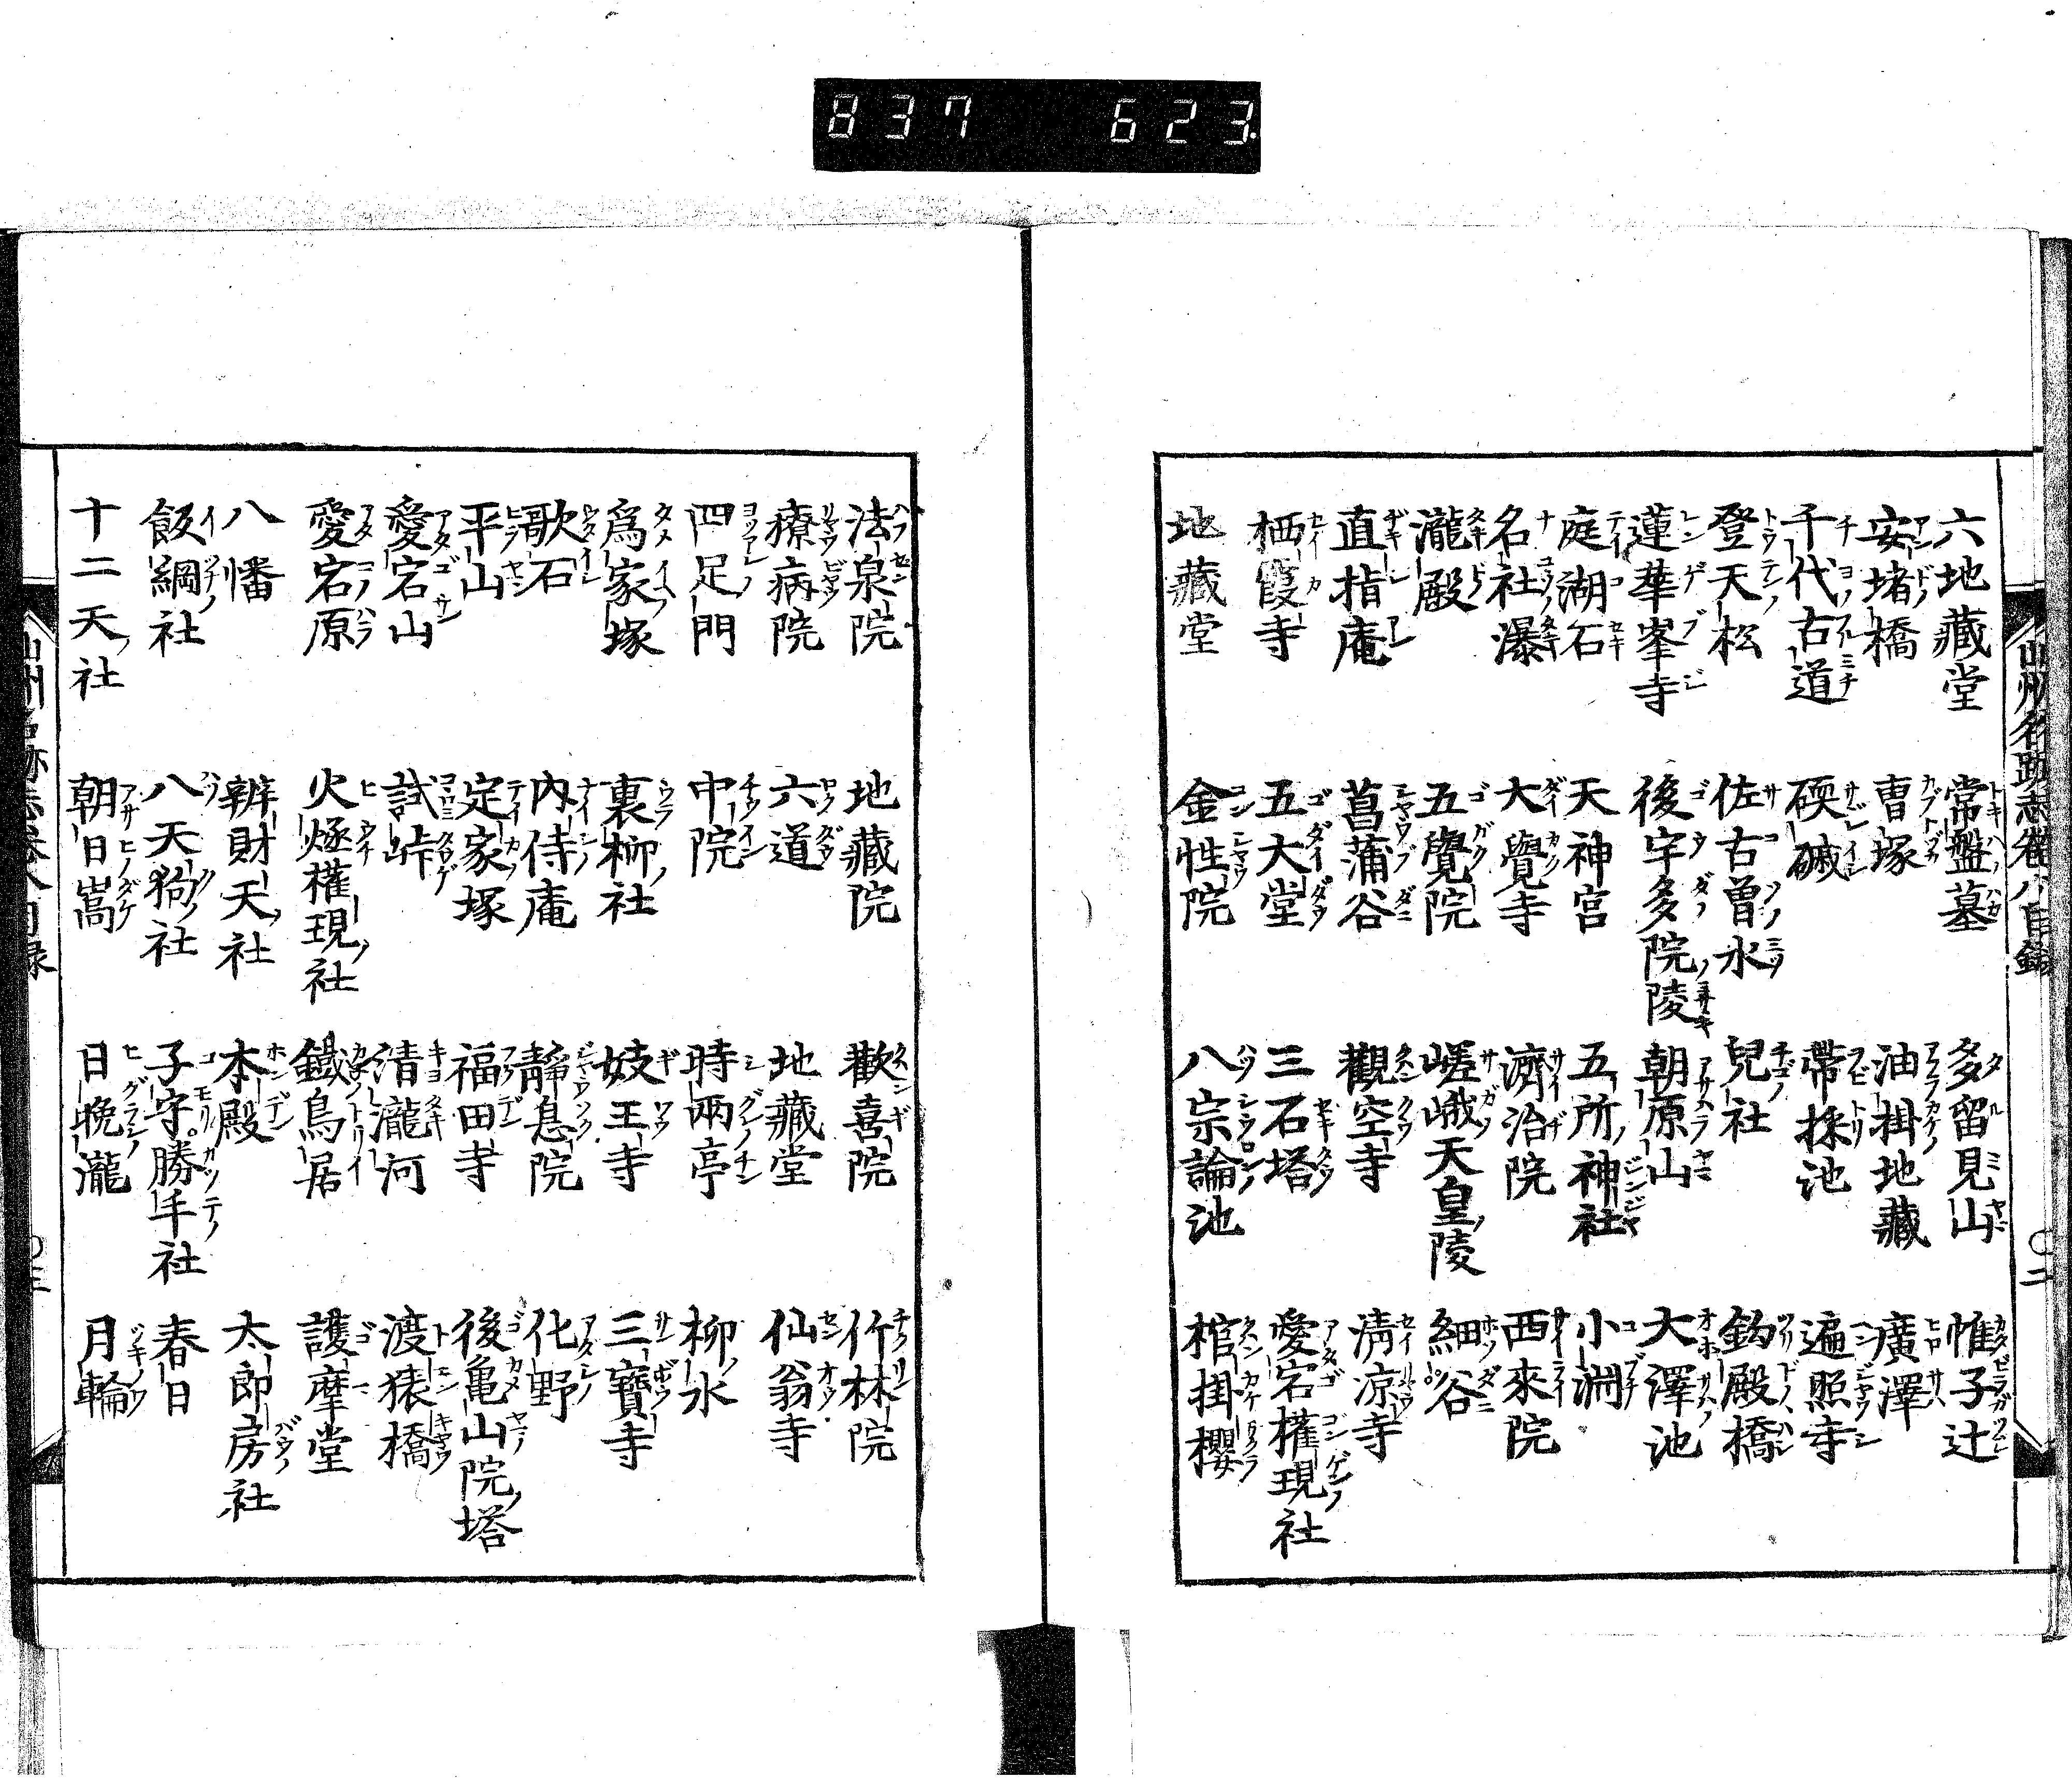 837 623
山州名跡志卷八目錄 〇二
六地藏堂 常盤墓 多留見山 帷子辻
安堵橋 曹塚 油掛地藏 廣澤
千代古道 礝磩 帶採池 遍照寺
登天松 佐古曽水 兒社 釣殿橋
蓮華峯寺 後宇多院陵 朝原山 大澤池
庭湖石 天神宮 五所神社 小淵
名社瀑 大覺寺 濟治院 西來院
瀧殿 五覺院 嵯峨天皇陵 細谷
直指庵 菖蒲谷 觀空寺 淸凉寺
栖霞寺 五大堂 三石塔 愛宕權現社
地藏堂 金性院 八宗論池 棺掛櫻
法泉院 地藏院 歡喜院 竹林院
療病院 六道 地藏堂 仙翁寺
四足門 中院 時雨亭 柳水
爲家塚 裏柳社 妓王寺 三寶寺
歌石 內侍庵 靜息院 化野
平山 定家塚 福田寺 後亀山院塔
愛宕山 試峠 清瀧河 渡猿橋
愛宕原 火燧權現社 鐵鳥居 護摩堂
八幡 辨財天社 本殿 太郎房社
飯綱社 八天狗社 子守勝手社 春日
十二天社 朝日嵩 日晩瀧 月輪